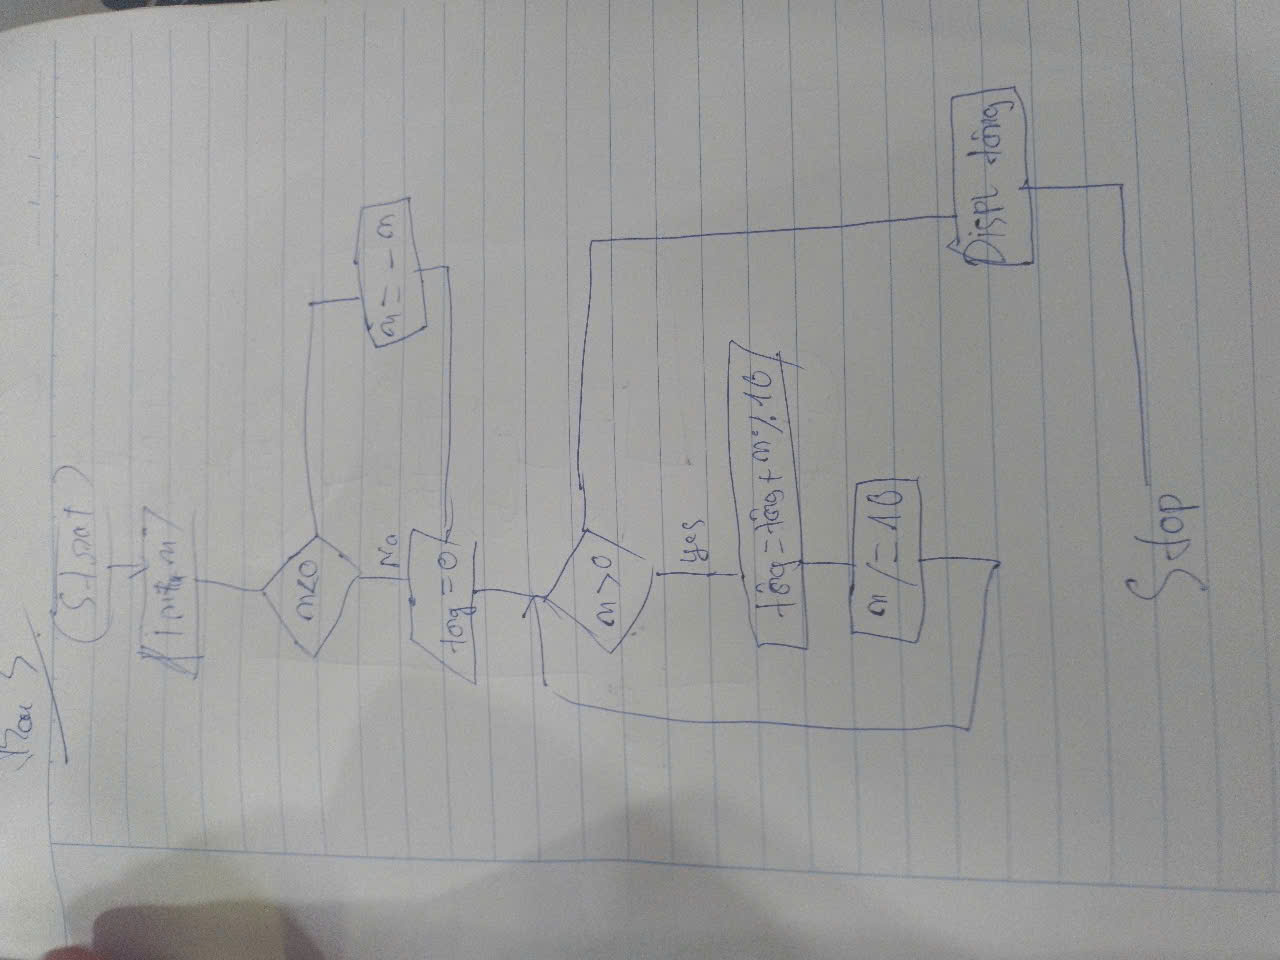 Bài 5
Start
Input n
n<0
n = -n
No
tong = 0
n > 0
Yes
tông = tông + n % 10
n /= 10
Displ tông
Stop